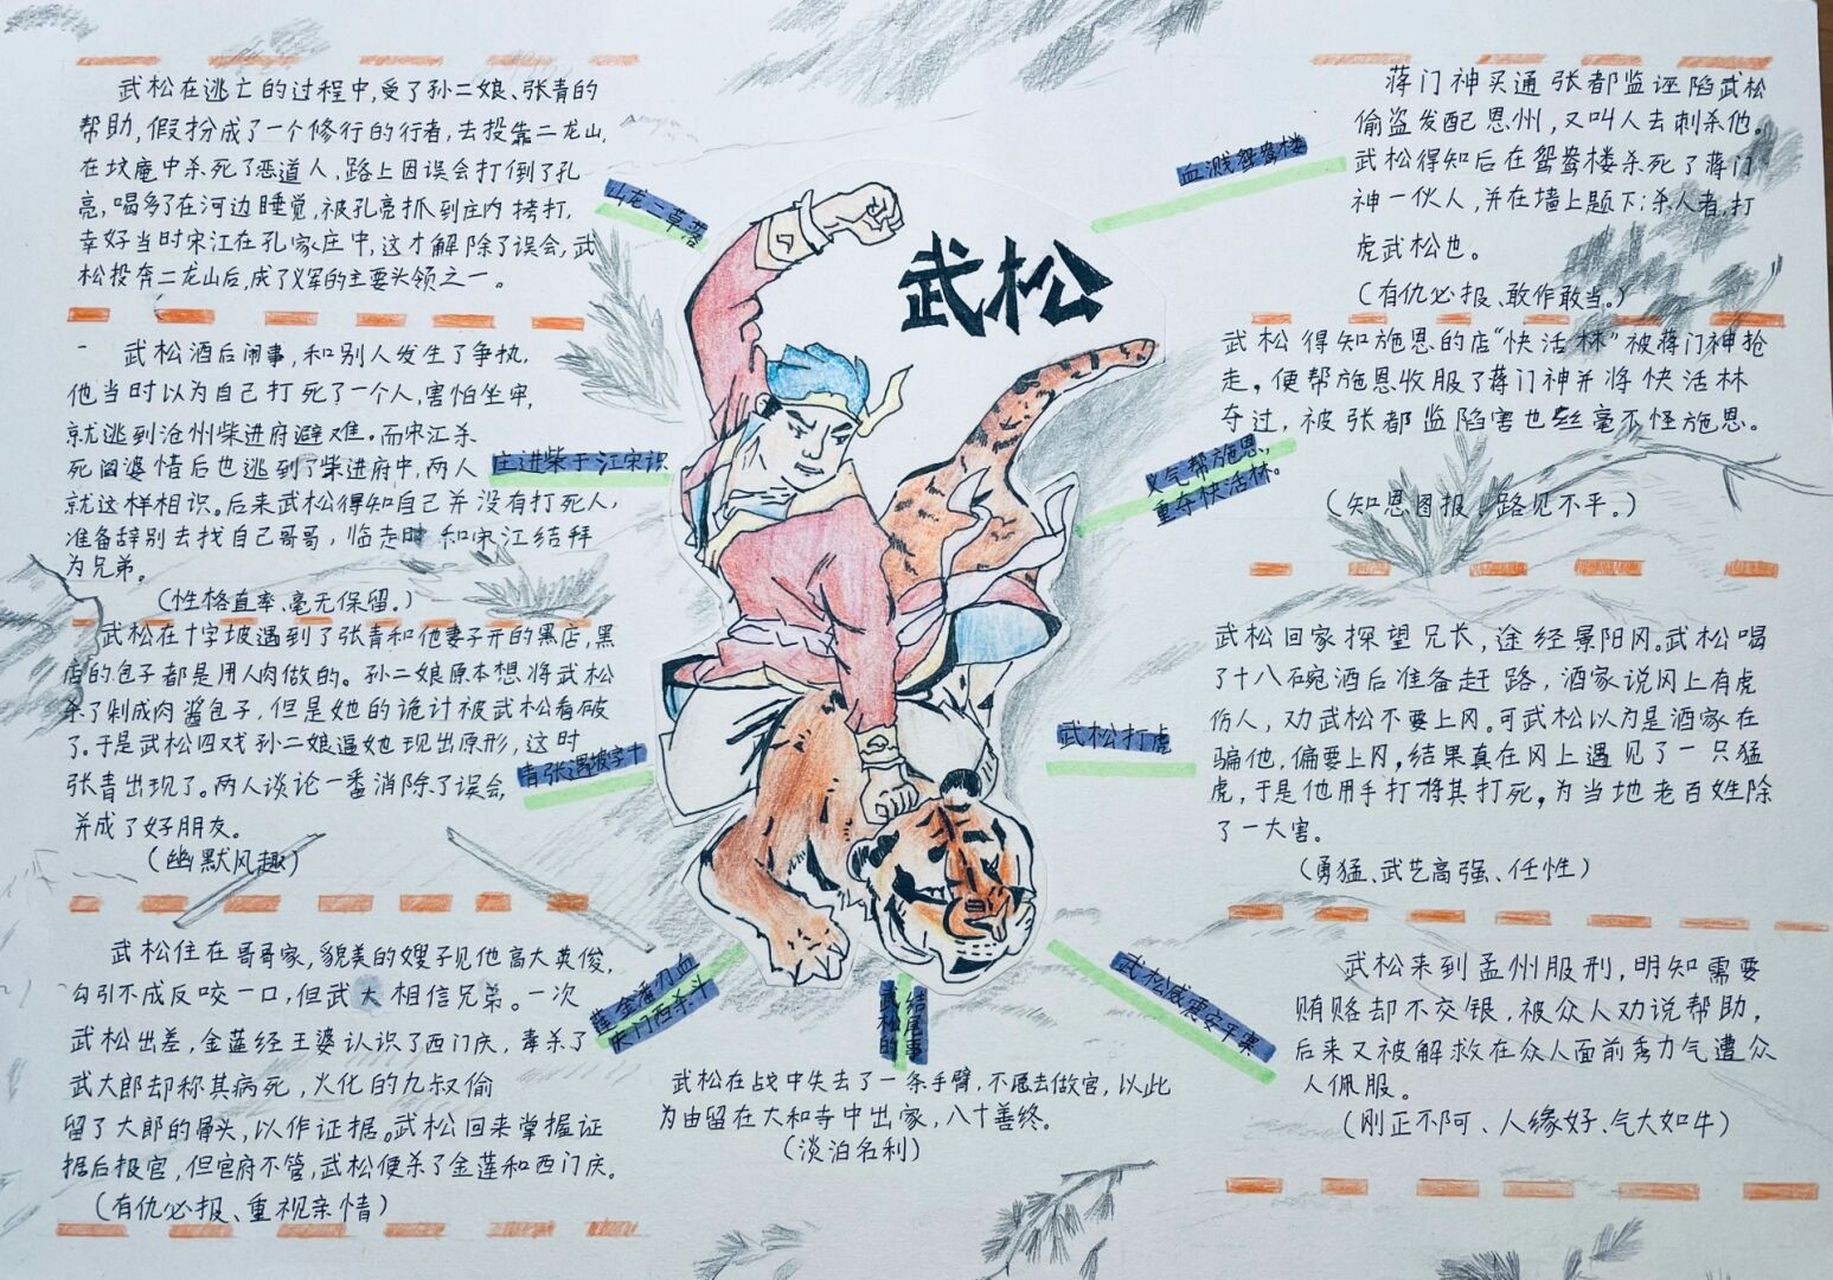 武松
武松在逃亡的过程中,受了孙二娘、张青的
帮助,假扮成了一个修行的行者,去投靠二龙山,
在坟庵中杀死了恶道人,路上因误会打倒了孔
亮,喝多了在河边睡觉,被孔亮抓到庄内拷打,
幸好当时宋江在孔家庄中,这才解除了误会,武
松投奔二龙山后,成了义军的主要头领之一。
山龙二草落
武松酒后闹事,和别人发生了争执,
他当时以为自己打死了一个人,害怕坐牢,
就逃到沧州柴进府避难。而宋江杀
死阎婆惜后也逃到了柴进府中,两人
就这样相识。后来武松得知自己并没有打死人,
准备辞别去找自己哥哥,临走时和宋江结拜
为兄弟。
(性格直率、毫无保留。)
庄进柴于江宋识
武松在十字坡遇到了张青和他妻子开的黑店,黑
店的包子都是用人肉做的。孙二娘原本想将武松
杀了剁成肉酱包子,但是她的诡计被武松看破
了。于是武松四戏孙二娘逼她现出原形,这时
张青出现了。两人谈论一番消除了误会,
并成了好朋友。
(幽默风趣)
青张遇坡字十
武松住在哥哥家,貌美的嫂子见他高大英俊,
勾引不成反咬一口,但武大相信兄弟。一次
武松出差,金莲经王婆认识了西门庆,毒杀了
武大郎却称其病死,火化的九叔偷
留了大郎的骨头,以作证据。武松回来掌握证
据后报官,但官府不管,武松便杀了金莲和西门庆。
(有仇必报、重视亲情)
莲金潘刃血
庆门西杀斗
武松的
结尾事
武松在战中失去了一条手臂,不愿去做官,以此
为由留在大和寺中出家,八十善终。
(淡泊名利)
血溅鸳鸯楼
蒋门神买通张都监诬陷武松
偷盗发配恩州,又叫人去刺杀他。
武松得知后在鸳鸯楼杀死了蒋门
神一伙人,并在墙上题下:杀人者,打
虎武松也。
(有仇必报、敢作敢当。)
武松得知施恩的店“快活林”被蒋门神抢
走,便帮施恩收服了蒋门神并将快活林
夺过,被张都监陷害也丝毫不怪施恩。
(知恩图报、路见不平。)
义气帮施恩,
重夺快活林。
武松回家探望兄长,途经景阳冈。武松喝
了十八碗酒后准备赶路,酒家说冈上有虎
伤人,劝武松不要上冈。可武松以为是酒家在
骗他,偏要上冈,结果真在冈上遇见了一只猛
虎,于是他用手打将其打死,为当地老百姓除
了一大害。
(勇猛、武艺高强、任性)
武松打虎
武松来到孟州服刑,明知需要
贿赂却不交银,被众人劝说帮助,
后来又被解救在众人面前秀力气遭众
人佩服。
(刚正不阿、人缘好、气大如牛)
武松威震安平寨